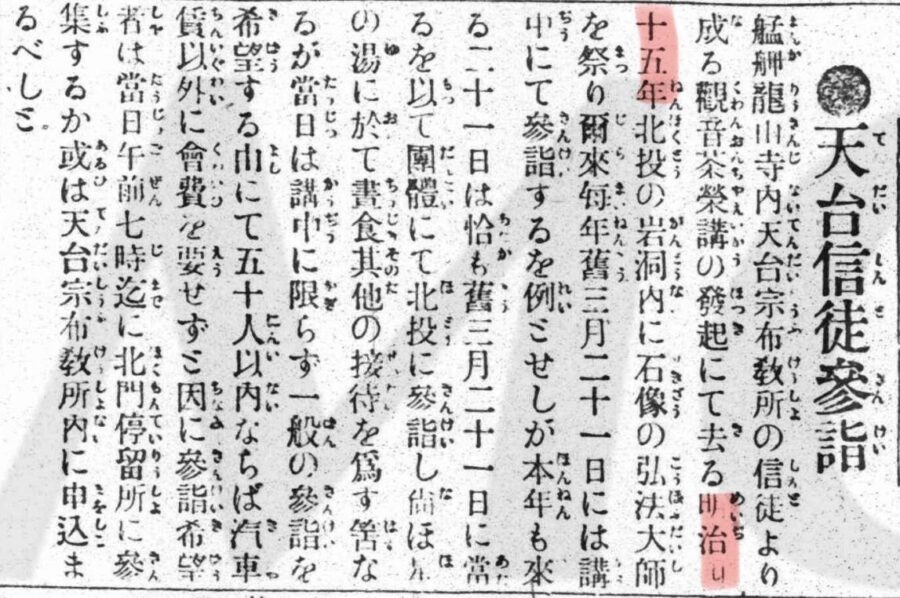 ●天台信徒參詣
艋舺龍山寺内天台宗布敎所の信徒より
成る觀音茶榮講の發起にて去る明治
十五年北投の岩洞内に石像の弘法大師
を祭り爾來每年舊三月二十一日には講
中にて參詣するを例とせしが本年も來
る二十一日は恰も舊三月二十一日に當
るを以て團體にて北投に參詣し尙ほ星
の湯に於て晝食其他の接待を爲す筈な
るが當日は講中に限らず一般の參詣を
希望する由にて五十人以内ならば汽車
賃以外に會費を要せずと因に參詣希望
者は當日午前七時迄に北門停留所に參
集するか或は天台宗布敎所内に申込ま
るべしと